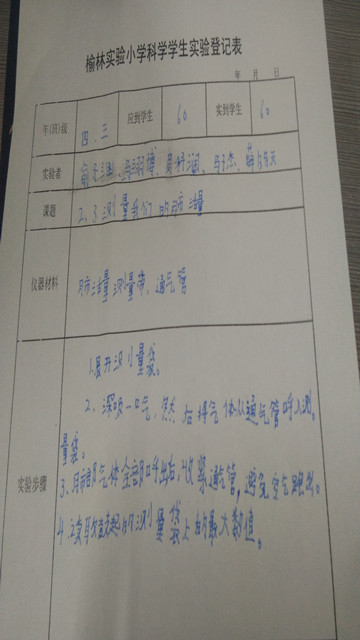 榆林实验小学科学学生实验登记表
年 月 日
年(班)级 四.三 应到学生 60 实到学生 60
实验者
课题 2、3.测量我们的肺活量
仪器材料 肺活量测量袋、通气管
实验步骤
1.展开测量袋。
2、深吸一口气,然后将气体从通气管呼入测
量袋。
3、肺部气体全部呼出后,收紧通气管,避免空气跑出。
4.读取卷起的测量袋上的最大数值。